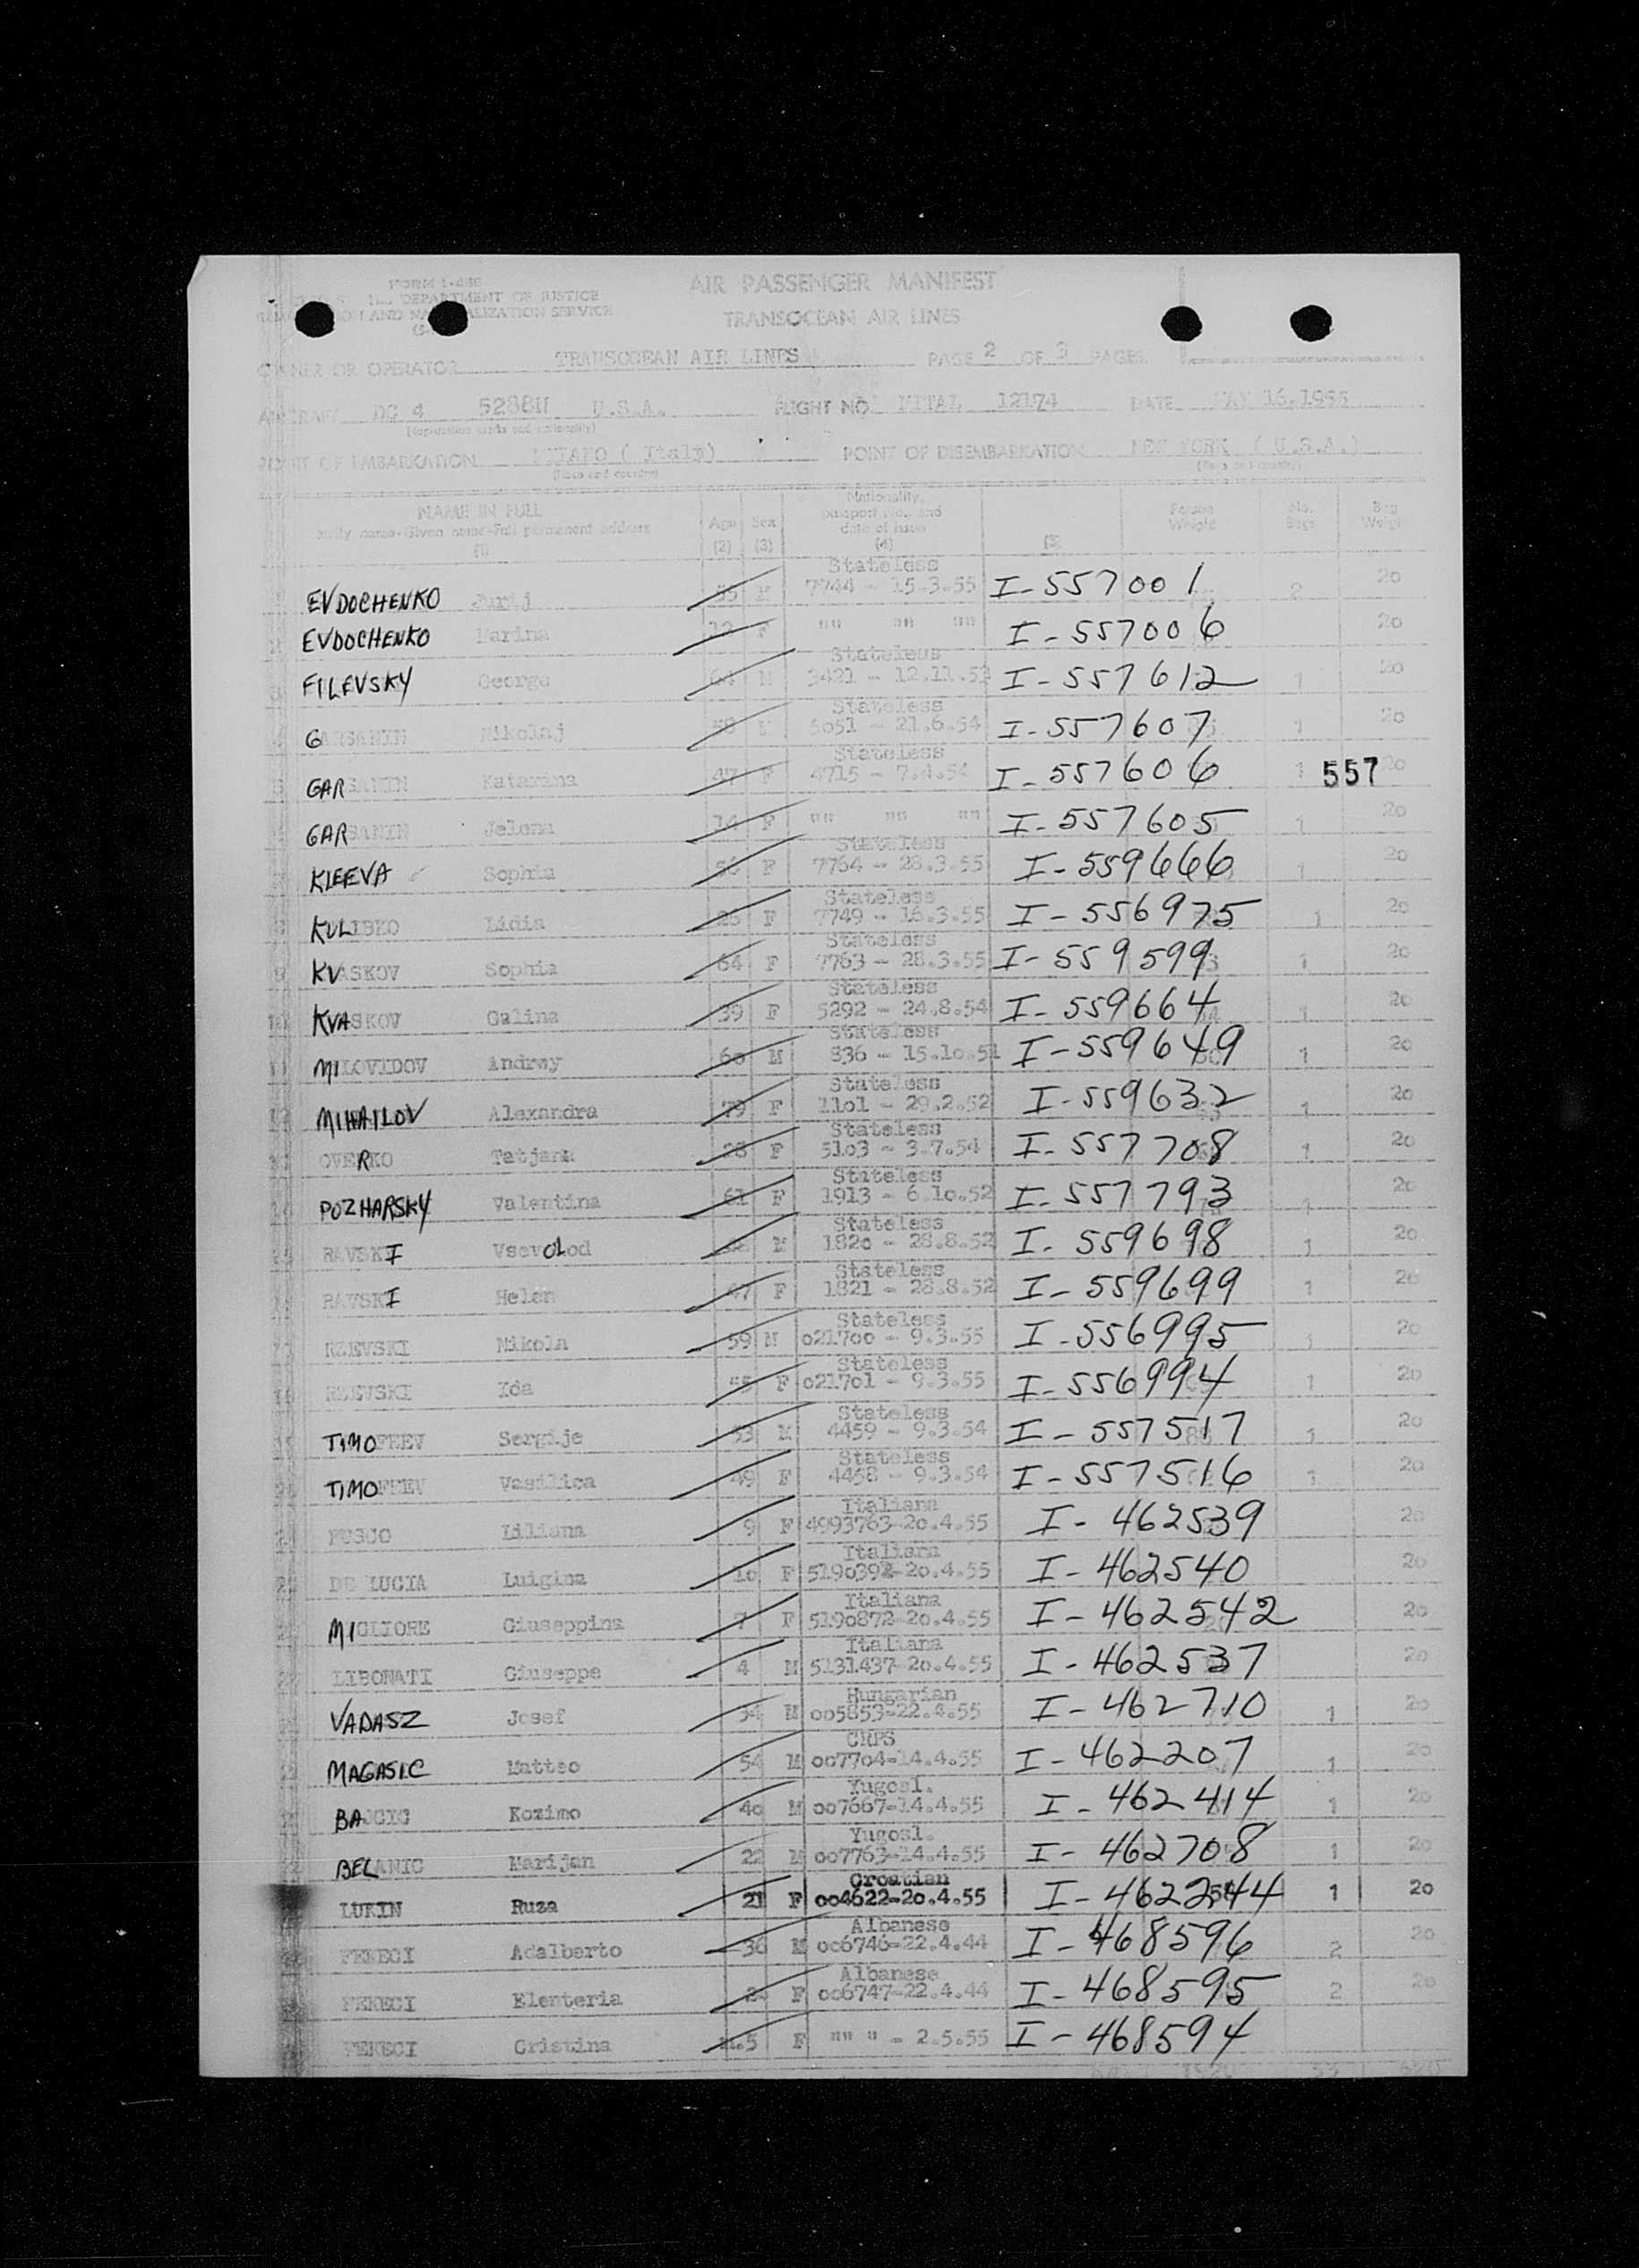 FORM I-466
AIR PASSENGER MANIFEST
DEPARTMENT OF JUSTICE
AND NATURALIZATION SERVICE
TRANSOCEAN AIR LINES
OWNER OR OPERATOR TRANSOCEAN AIR LINES PAGE 2 OF 3 PAGES
AIRCRAFT DC 4 5288N U.S.A. FLIGHT NO. MITAL 12174 DATE MAY 16, 1955
(Registration marks and nationality)
POINT OF EMBARKATION MILANO ( Italy) POINT OF DISEMBARKATION NEW YORK ( U.S.A.)
(Place and country) (Place and country)
NAME IN FULL Age Sex Nationality, passport No. and date of issue Person Weight No. Bags Bag Weight
Family name-Given name-Full permanent address
(1) (2) (3) (4) (5)
Stateless
EVDOCHENKO Jurij 55 M 7744 - 15.3.55 I-557001 2 20
EVDOCHENKO Marina 12 F "" "" "" I-557006 20
Stateless
FILEVSKY George 64 M 3421 - 12.11.53 I-557612 1 20
Stateless
GARSANIN Nikolaj 58 M 5051 - 21.6.54 I-557607 1 20
Stateless
GARSANIN Katarina 47 F 4715 - 7.4.54 I-557606 1 557 20
GARSANIN Jelena 14 F "" "" "" I-557605 1 20
Stateless
KLEEVA Sophia 56 F 7764 - 28.3.55 I-559666 1 20
Stateless
KULIBKO Lidia 25 F 7749 - 16.3.55 I-556975 1 20
Stateless
KVASKOV Sophia 64 F 7763 - 28.3.55 I-559599 1 20
Stateless
KVASKOV Galina 39 F 5292 - 24.8.54 I-559664 1 20
Stateless
MILOVIDOV Andrey 60 M 836 - 15.10.51 I-559649 1 20
Stateless
MIHAILOV Alexandra 79 F 1101 - 29.2.52 I-559632 1 20
Stateless
OVERKO Tatjana 28 F 5103 - 3.7.54 I-557708 1 20
Stateless
POZHARSKY Valentina 61 F 1913 - 6.10.52 I-557793 1 20
Stateless
RAVSKI Vsevolod M 1820 - 28.8.52 I-559698 1 20
Stateless
RAVSKI Helen 47 F 1821 - 28.8.52 I-559699 1 20
Stateless
RZEVSKI Nikola 59 M 021700 - 9.3.55 I-556995 1 20
Stateless
RZEVSKI Ida 55 F 021701 - 9.3.55 I-556994 1 20
Stateless
TIMOFEEV Sergije 53 M 4459 - 9.3.54 I-557517 1 20
Stateless
TIMOFEEV Vasilica 49 F 4458 - 9.3.54 I-557516 1 20
Italiana
FUSCO Liliana 9 F 4993763-20.4.55 I-462539 20
Italiana
DE LUCIA Luigina 10 F 5190392-20.4.55 I-462540 20
Italiana
MIGLIORE Giuseppina 7 F 5190872-20.4.55 I-462542 20
Italiana
LIBONATI Giuseppe 4 M 5131437-20.4.55 I-462537 20
Hungarian
VADASZ Josef 34 M 005853-22.4.55 I-462710 1 20
CRPS
MAGASIC Matteo 54 M 007704-14.4.55 I-462207 1 20
Yugosl.
BAJCIC Kozimo 40 M 007667-14.4.55 I-462414 1 20
Yugosl.
BELANIC Marijan 22 M 007763-14.4.55 I-462708 1 20
Croatian
LUKIN Ruza 21 F 004622-20.4.55 I-462244 1 20
Albanese
FEKECI Adalberto 36 M 006746-22.4.44 I-468596 2 20
Albanese
FEKECI Elenteria F 006747-22.4.44 I-468595 2 20
FEKECI Cristina F "" " - 2.5.55 I-468594